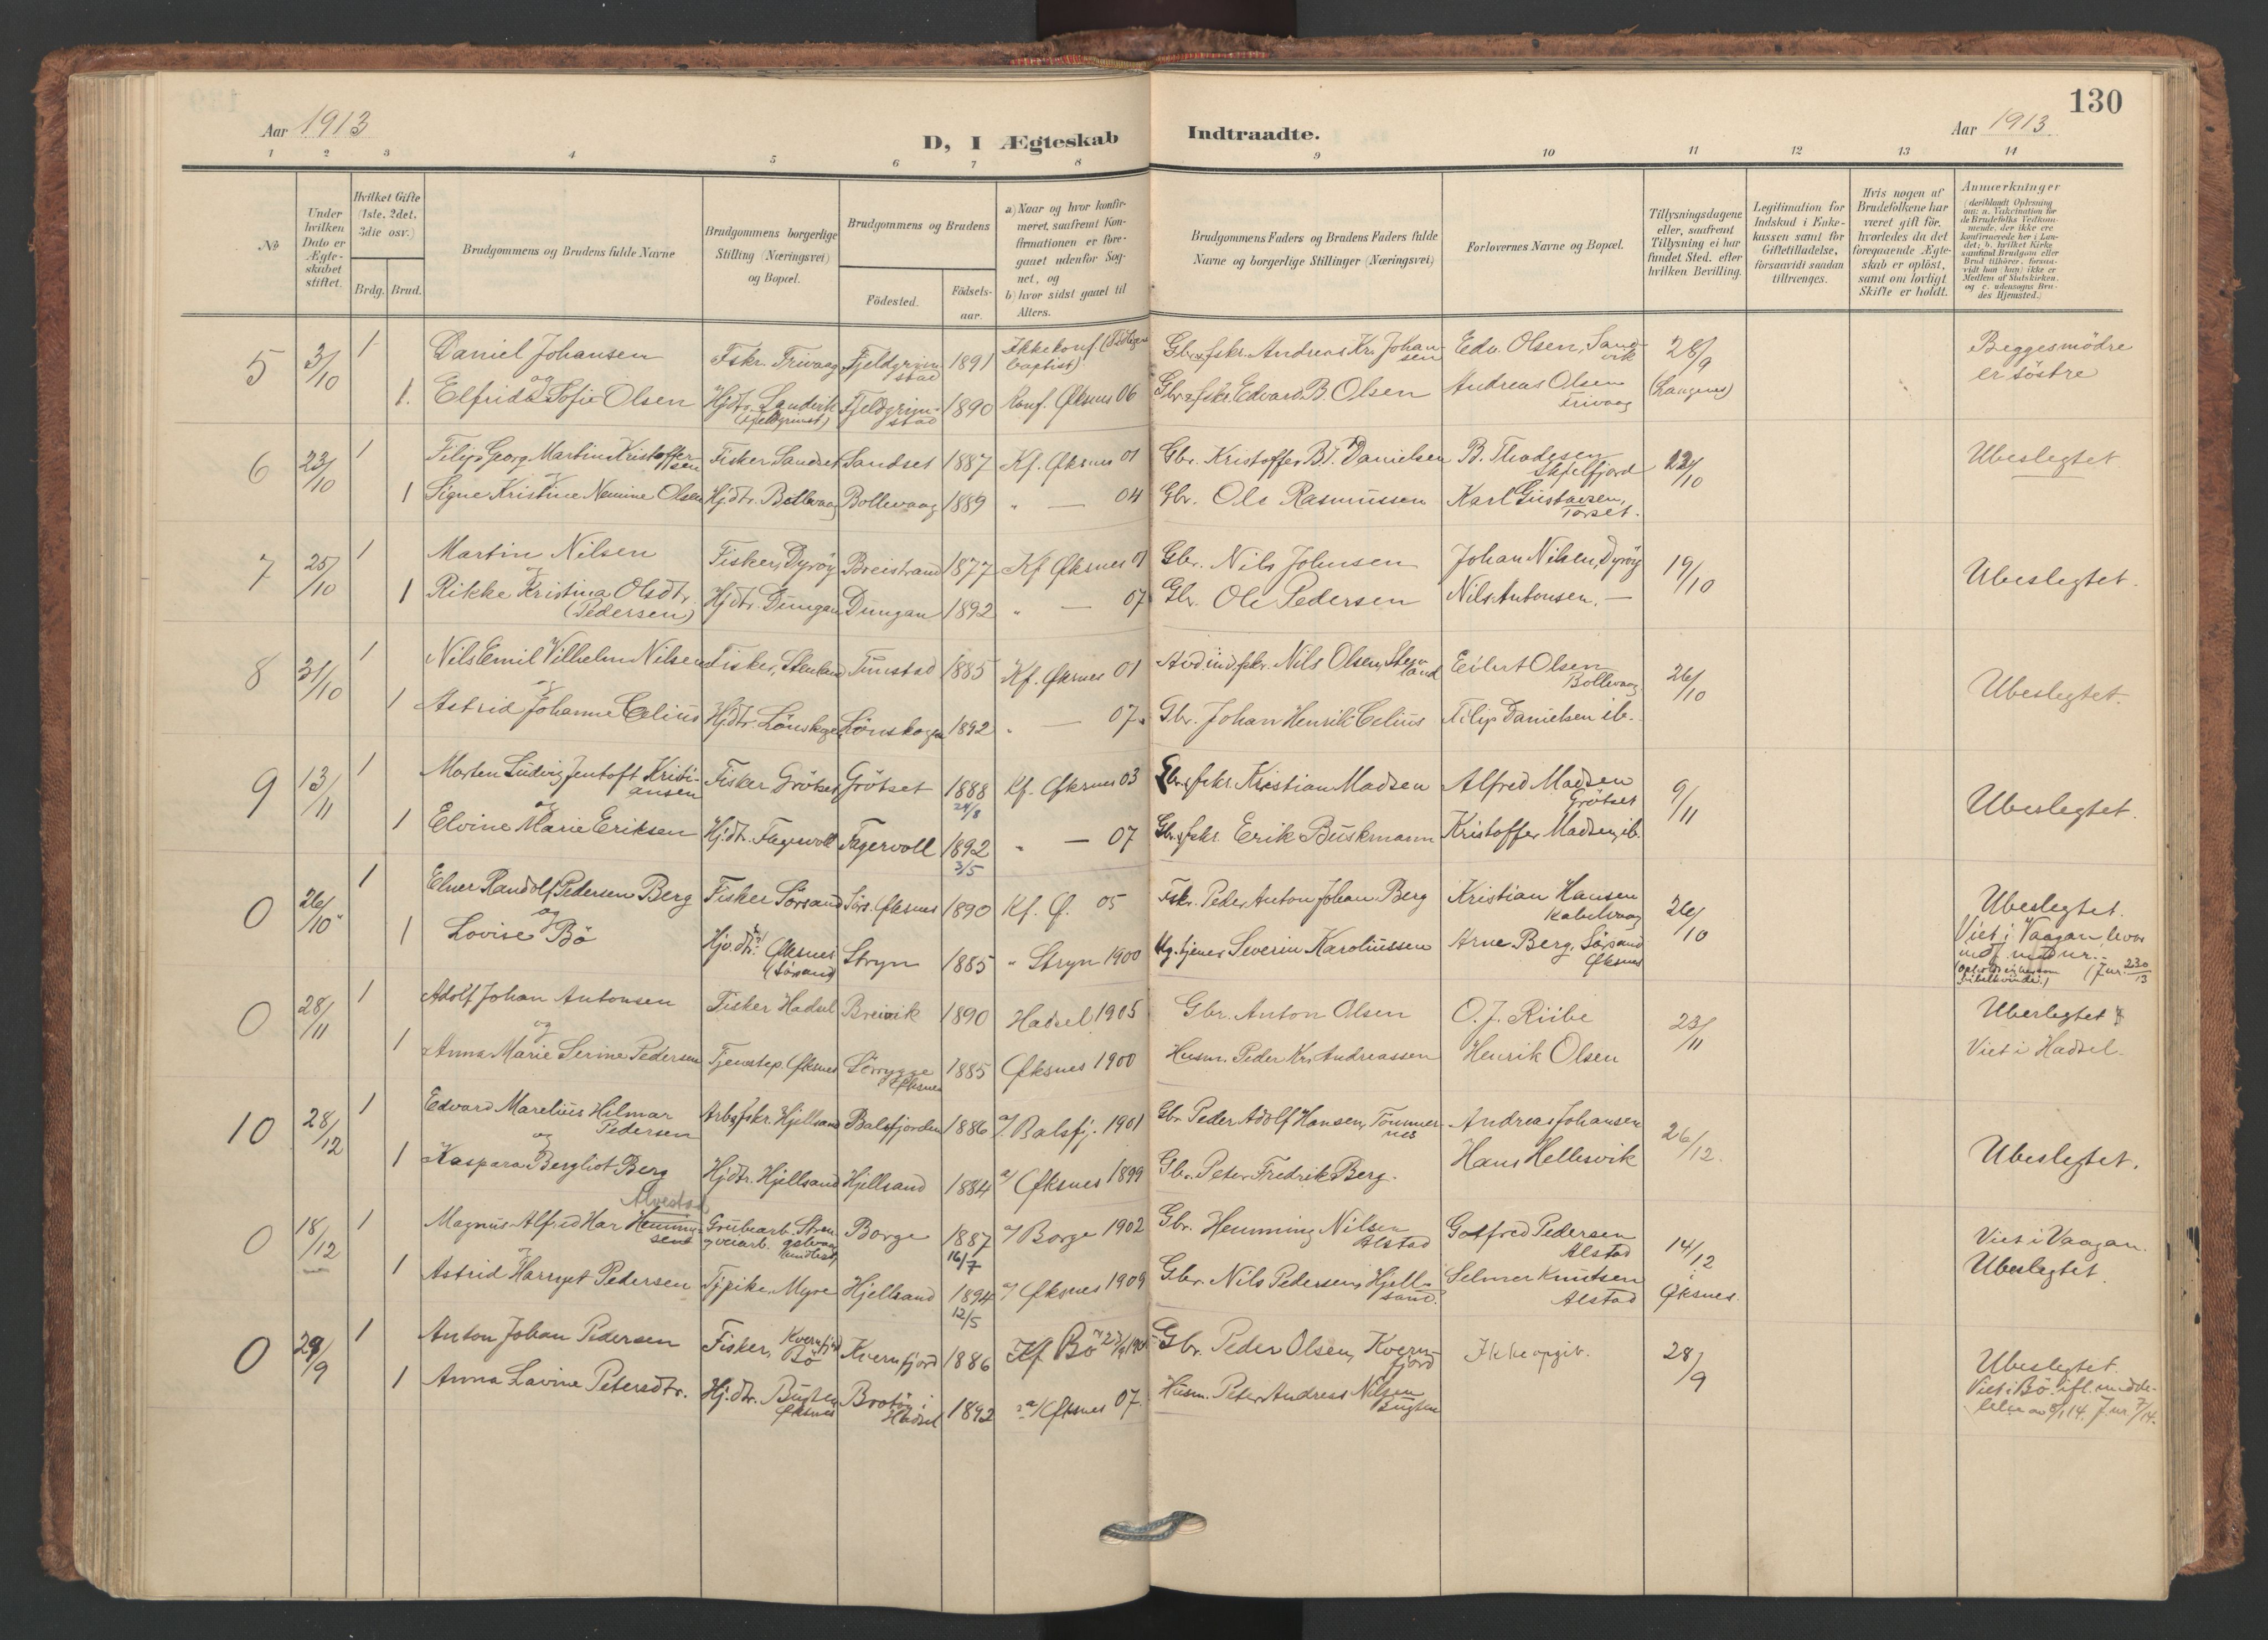 130
Aar 1913
D, I Ægteskab Indtraadte.
Aar 1913
1 2 3 4 5 6 7 8 9 10 11 12 13 14
No
Under hvilken Dato er Ægteskabet stiftet.
Hvilket Gifte (1ste, 2det, 3die osv.)
Brdg. Brud.
Brudgommens og Brudens fulde Navne
Brudgommens borgerlige Stilling (Næringsvei) og Bopæl.
Brudgommens og Brudens
Födested.
Födsels-aar.
a) Naar og hvor konfirmeret, saafremt Konfirmationen er foregaaet udenfor Sognet, og
b) hvor sidst gaaet til Alters.
Brudgommens Faders og Brudens Faders fulde Navne og borgerlige Stillinger (Næringsvei)
Forlovernes Navne og Bopæl.
Tillysningsdagene eller, saafremt Tillysning ei har fundet Sted, efter hvilken Bevilling.
Legitimation for Indskud i Enkekassen samt for Giftetilladelse, forsaavidt saadan tiltrænges.
Hvis nogen af Brudefolkene har været gift för, hvorledes da det foregaaende Ægteskab er oplöst, samt om lovligt Skifte er holdt.
Anmærkninger (deriblandt Oplysning om: a. Vakcination for de Brudefolks Vedkommende, der ikke ere konfirmerede her i Landet; b. hvilket Kirkesamfund Brudgom eller Brud tilhörer, forsaavidt han (hun) ikke er Medlem af Statskirken, og c. udensogns Brudes Hjemsted.)
5 3/10 1 Daniel Johansen Fskr. Trivaag Fjeldgrimstad 1891 Ikke konf. ( baptist) Gbr. & fskr. Andreas Kr. Johansen Edv. Olsen, Sandvik 28/9 Begges mödre
og
1. Elfrida Sofie Olsen Hjdtr. Sandvik (Fjeldgrimst) Fjeldgrimstad 1890 Konf. Øksnes 06 Gbr. & fskr. Edvard B. Olsen Andreas Olsen Trivaag (Langenes) er söstre
6 23/10 1 Filip Georg Martin Kristoffersen Fisker Sandset Sandset 1887 Kf. Øksnes 01 Gbr. Kristoffer B. T. Danielsen B. Thodesen Skjelfjord 22/10 Ubeslegtet
og
1 Signe Kristine Nemine Olsen Hjdtr. Bollevaag Bollevaag 1889 " — 04 Gbr. Ole Rasmussen Karl Gustavsen, Torset.
7 25/10 1 Martin Nilsen Fisker, Dyröy Breistrand 1877 Kf Øksnes 01 Gbr. Nils Johnsen Johan Nilsen, Dyröy 19/10 Ubeslegtet.
og
1 Rikke Kristina Olsdtr. (Pedersen) Hjdtr. Dungan Dungan 1892 " — 07 Gbr. Ole Pedersen Nils Antonsen, —
8 31/10 1 Nils Emil Vilhelm Nilsen Fisker, Stenland Tunstad 1885 Kf. Øksnes 01 Nils Olsen, Stenland Eilert Olsen Bollevaag 26/10 Ubeslegtet.
og
1 Astrid Johanne Celius Hjdtr. Lönskogen Lönskogen 1892 " — 07. Gbr. Johan Henrik Celius Filip Danielsen ib.
9 13/11 1 Morten Ludvig Jentoft Kristiansen Fisker Grötset Grötset 1888 24/8 Kf. Øksnes 03 Gbr. & fskr. Kristian Madsen Alfred Madsen Grötset 9/11 Ubeslegtet.
og
1 Elvine Marie Eriksen Hj.dtr. Fagervoll Fagervoll 1892 3/5 " — 07 Gbr. & fskr. Erik Buskmann Kristoffer Madsen, ib.
0 26/10 1 Elner Randolf Pedersen Berg Fisker Sörsand Sörs. Øksnes 1890 Kf. Ø. 05 Fskr. Peder Anton Johan Berg Kristian Hansen Kabelvaag 26/10 Ubeslegtet.
og
1 Lovise Bö Øksnes (Sörsand) Stryn 1885 " Stryn 1900 Severin Karoliussen Arne Berg, Sörsand Øksnes Viet i Vaagan, hvor
Jur. 230/13
0 28/11 1 Adolf Johan Antonsen Fisker Hadsel Breivik 1890 Hadsel 1905 Gbr. Anton Olsen O. J. Riibe 23/11 Ubeslegtet
og
1 Anna Marie Serine Pedersen Tjenstep. Øksnes Sörrygge Øksnes 1885 Øksnes 1900 Husm. Peder Kr. Andreassen Henrik Olsen Viet i Hadsel.
10 28/12 1 Edvard Marelius Hilmar Pedersen Arb. & fskr. Hjellsand Balsfjorden 1886 a/ Balsfj. 1901 Gbr. Peder Adolf Hansen, Tömmernes Andreas Johansen 26/12. Ubeslegtet.
og
1 Kaspara Bergliot Berg Hjdtr. Hjellsand Hjellsand 1884 a/ Øksnes 1899 Gbr. Peter Fredrik Berg. Hans Hellesvik
Alvestad
0 18/12 1 Magnus Alfred Har Hemmingsen Grubearb. & veiarb. Borge 1887 16/7 a/ Borge 1902 Gbr. Hemming Nilsen Alstad Gotfred Pedersen Alstad 14/12 Viet i Vaagan.
og
1 Astrid Harryet Pedersen Tj.pike, Myre Hjellsand 1894 12/5 a/ Øksnes 1909 Gbr. Nils Pedersen, Hjellsand. Selmer Knutsen Alstad i Øksnes. Ubeslegtet.
0 29/9 1 Anton Johan Pedersen Fisker, Kvernfjord Bö Kvernfjord 1886 Kf Bö Gbr. Peder Olsen, Kvernfjord Ikke opgit. 28/9 Ubeslegtet.
1 Anna Lavine Petersdtr. Hj.dtr. Bugten Øksnes Brotöy i Hadsel 1892 a/ Øksnes 07. Husm. Peter Andreas Nilsen Bugten Viet i Bö ifl. meddelelse av 8/1 14. Jur. 7/14.